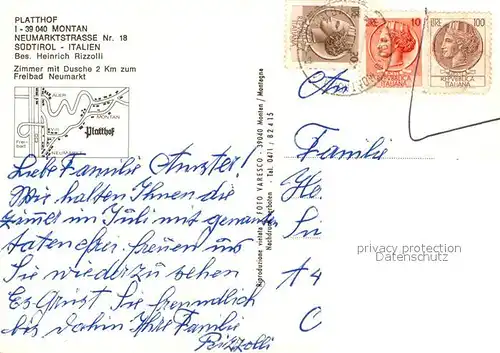 PLATTHOF
I - 39 040 MONTAN
NEUMARKTSTRASSE Nr. 18
SÜDTIROL - ITALIEN
Bes. Heinrich Rizzolli
Zimmer mit Dusche 2 Km zum
Freibad Neumarkt
AUER
MONTAN
Platthof
Frei-
bad
NEUMARKT
Liebe Familie
Wir halten Ihnen die
Zimmer im Juli mit genanten
Daten frei. freuen uns
Sie wieder zu sehen
Es Grüst Sie freundlich
bis dahin Ihre Familie
Rizzolli
Riproduzione vietata FOTO VARESCO - 39040 Montan / Montagna
Nachdruck verboten - Tel. 0471 / 82415
LIRE 10
REPUBBLICA
ITALIANA
LIRE 100
REPUBBLICA
ITALIANA
An
Familie
He
A 4
privacy protection
Datenschutz